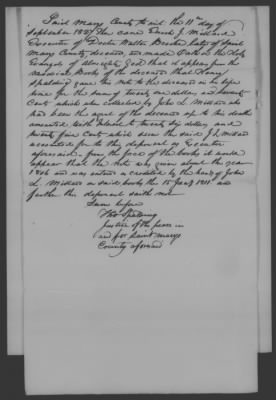 Saint Marys County to wit the 11th day of
September 1827 Then came Enoch J. Millard
Executor of Doctor Walter Brewton late of Saint
Marys County deceased, and made Oath on the Holy
Evangels of Almighty God that it appears from the
Medical Books of the deceased that Henry
Spalding gave his note to the deceased in his life
time for the sum of twenty one dollars and seventy
Cents which also collected by John L. Millard who
had been the agent of the deceased up to his death
amounted with to twenty six dollars and
Seventy five Cents which sum the said J L Millard
accounted for to this deponent as Executor
aforesaid. from the face of the books it would
appear that the note was given about the year
1806 and was entered a credited by the hand of John
L. Millard on said books the 15 Jany 1811. and
further this deponent saith not
Sworn before
Thos Spalding
Justice of the peace in
and for Saint Marys
County aforesaid